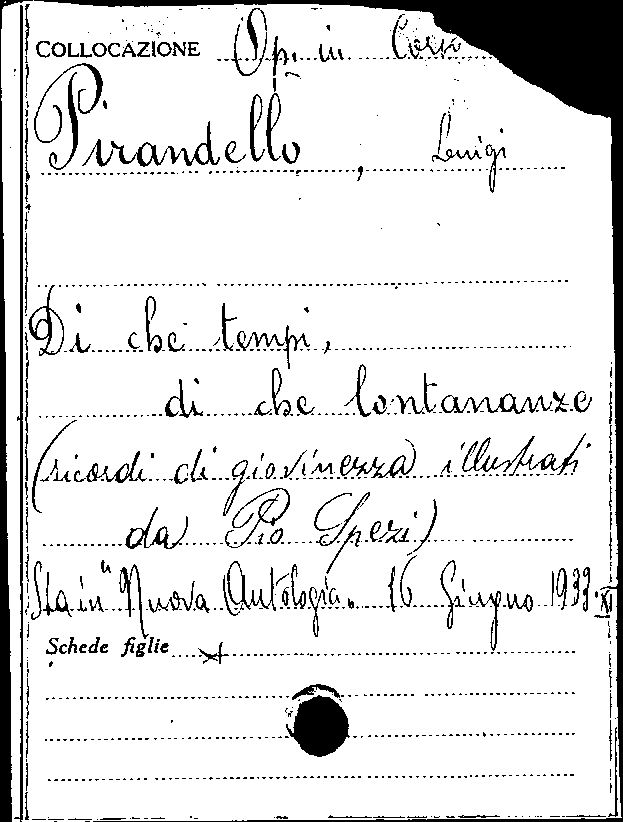 COLLOCAZIONE Op. in Corso
Pirandello, Luigi
Di che tempi,
di che lontananze
(ricordi di giovinezza illustrati
da Pio Spezi)
Sta in "Nuova Antologia. 16 Giugno 1933.XI
Schede figlie